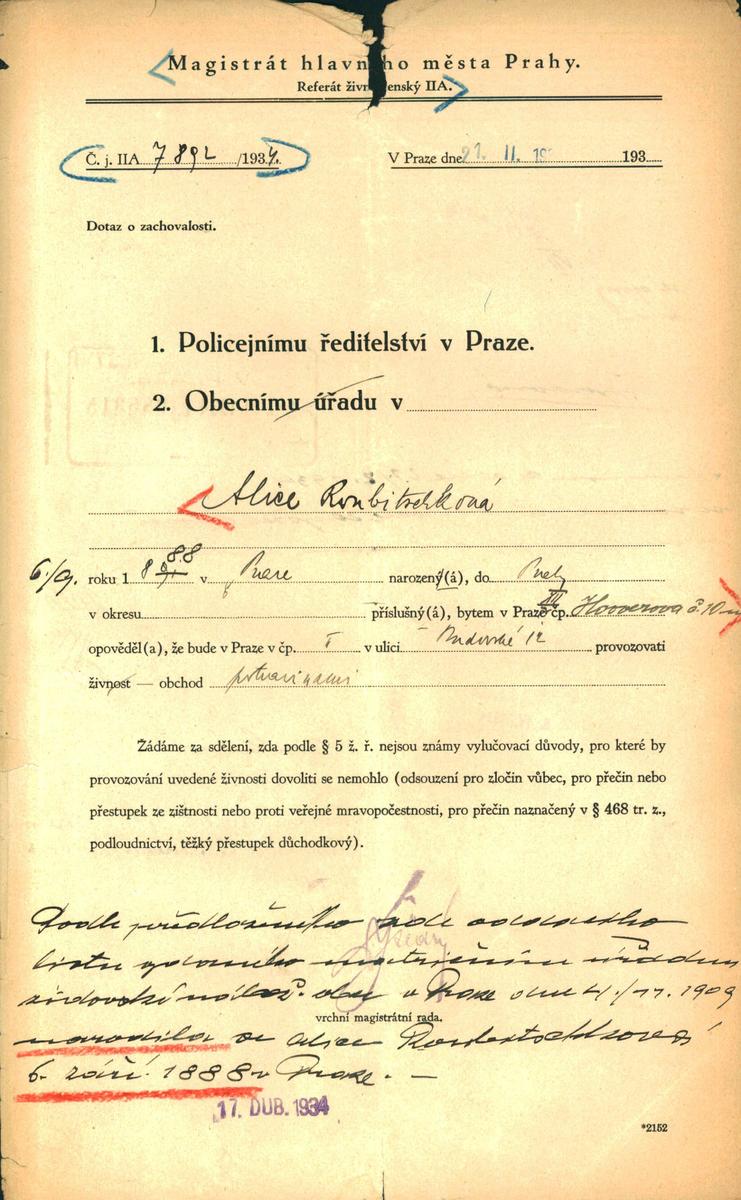 Magistrát hlavního města Prahy.
Referát živnostenský IIA.
Č. j. IIA 7892 /1934.
V Praze dne 21. II. 193
Dotaz o zachovalosti.
1. Policejnímu ředitelství v Praze.
2. Obecnímu úřadu v
Alice Roubitschková
88
6./9. roku 1 8 v Praze narozený(á), do Prahy
XII
v okresu příslušný(á), bytem v Praze čp. Hooverova č. 10
opověděl(a), že bude v Praze v čp. I v ulici 12 provozovati
živnost — obchod potravinami
Žádáme za sdělení, zda podle § 5 ž. ř. nejsou známy vylučovací důvody, pro které by
provozování uvedené živnosti dovoliti se nemohlo (odsouzení pro zločin vůbec, pro přečin nebo
přestupek ze zištnosti nebo proti veřejné mravopočestnosti, pro přečin naznačený v § 468 tr. z.,
podloudnictví, těžký přestupek důchodkový).
Podle předloženého zde oddacího
listu vydaného matričním úřadem
židovské nábož. obce v Praze dne 4./11. 1909
vrchní magistrátní rada.
narodila se Alice Roubitschková
6. září 1888 v Praze. —
17. DUB. 1934
*2152